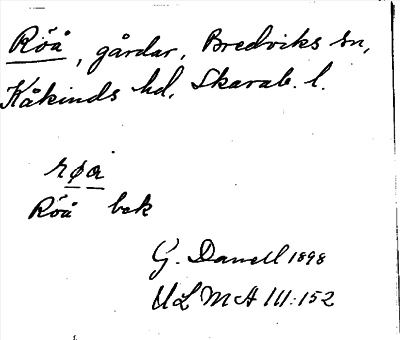 Röå, gårdar, Bredviks sn,
Kåkinds hd, Skarab. l.
røa
Röå bek
G. Danell 1898
ULMA 111:152